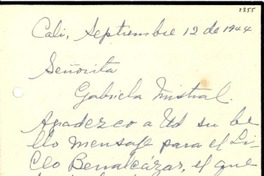 1355
Cali, Septiembre 12 de 1944
Señorita
Gabriela Mistral.
Agradezco a Ud su be-
llo mensaje para el Li-
ceo Benalcázar, el que